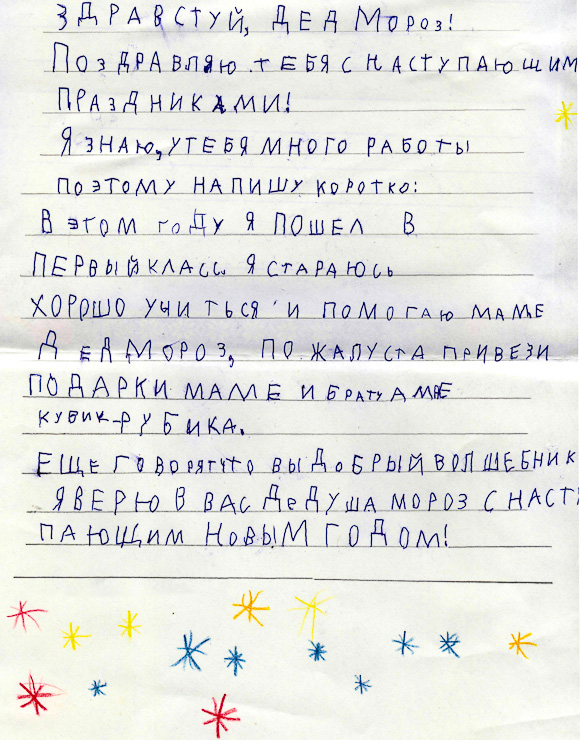 ЗДРАВСТУЙ, ДЕД МОРОЗ!
ПОЗДРАВЛЯЮ ТЕБЯ С НАСТУПАЮЩИМ
ПРАЗДНИКАМИ!
Я ЗНАЮ, У ТЕБЯ МНОГО РАБОТЫ
ПОЭТОМУ НАПИШУ КОРОТКО:
В ЭТОМ ГОДУ Я ПОШЕЛ В
ПЕРВЫЙ КЛАСС. Я СТАРАЮСЬ
ХОРОШО УЧИТЬСЯ И ПОМОГАЮ МАМЕ
ДЕД МОРОЗ, ПОЖАЛУСТА ПРИВЕЗИ
ПОДАРКИ МАМЕ И БРАТУ А МНЕ
КУБИК-РУБИКА.
ЕЩЕ ГОВОРЯТ ЧТО ВЫ ДОБРЫЙ ВОЛШЕБНИК
Я ВЕРЮ В ВАС ДЕДУША МОРОЗ С НАСТУ
ПАЮЩИМ НОВЫМ ГОДОМ!